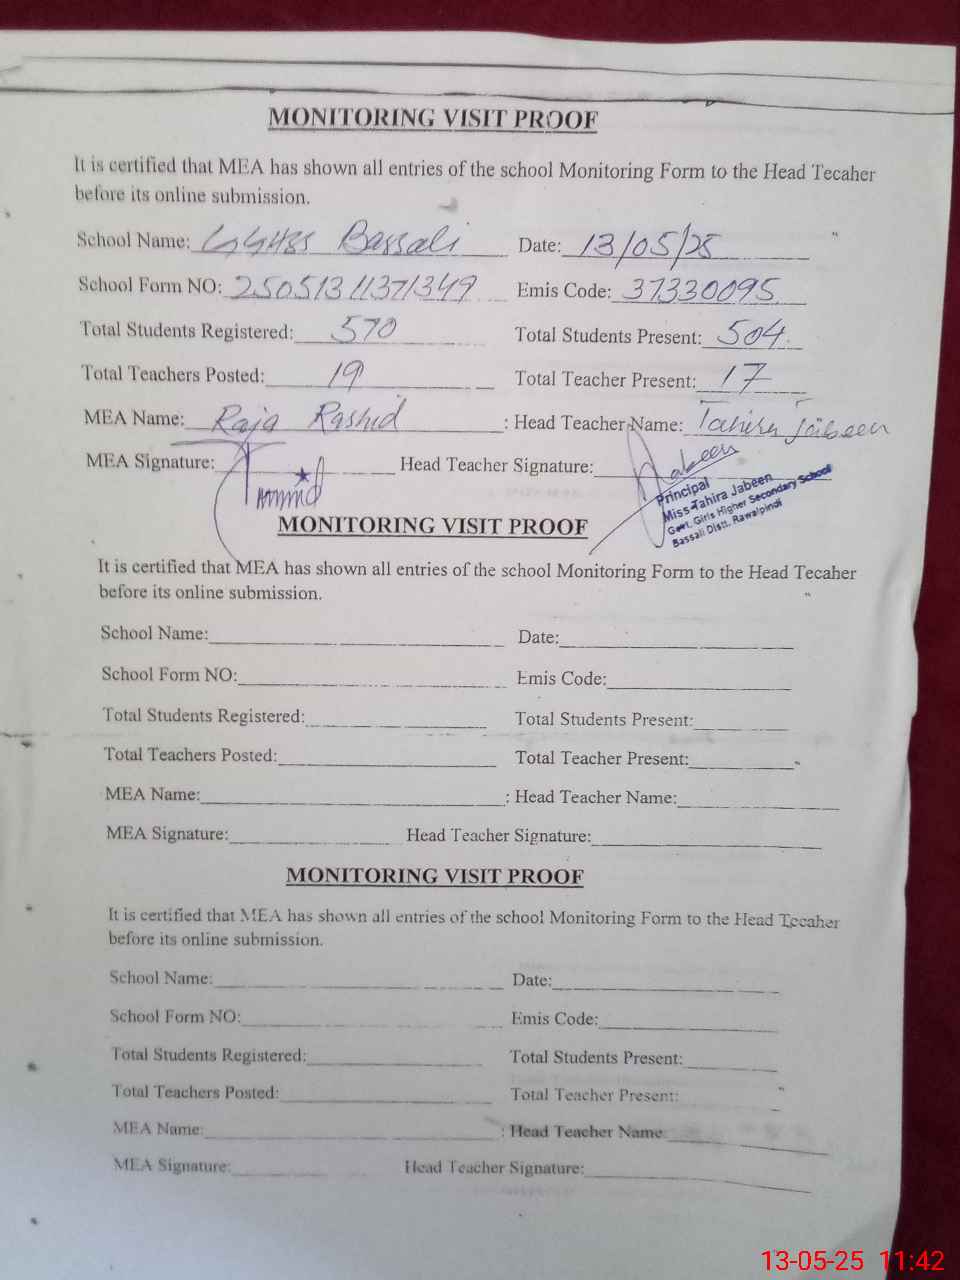 MONITORING VISIT PROOF
It is certified that MEA has shown all entries of the school Monitoring Form to the Head Tecaher
before its online submission.
School Name: GGHSS Bassali Date: 13/05/25
School Form NO: 25051311371349 Emis Code: 37330095
Total Students Registered: 570 Total Students Present: 504
Total Teachers Posted: 19 Total Teacher Present: 17
MEA Name: Raja Rashid : Head Teacher Name: Tahira Jabeen
MEA Signature: Head Teacher Signature: Jabeen
Principal
Miss Tahira Jabeen
Govt. Girls Higher Secondary School
Bassali Distt. Rawalpindi
MONITORING VISIT PROOF
It is certified that MEA has shown all entries of the school Monitoring Form to the Head Tecaher
before its online submission.
School Name: Date:
School Form NO: Emis Code:
Total Students Registered: Total Students Present:
Total Teachers Posted: Total Teacher Present:
MEA Name: : Head Teacher Name:
MEA Signature: Head Teacher Signature:
MONITORING VISIT PROOF
It is certified that MEA has shown all entries of the school Monitoring Form to the Head Tecaher
before its online submission.
School Name: Date:
School Form NO: Emis Code:
Total Students Registered: Total Students Present:
Total Teachers Posted: Total Teacher Present:
MEA Name: : Head Teacher Name:
MEA Signature: Head Teacher Signature:
13-05-25 11:42